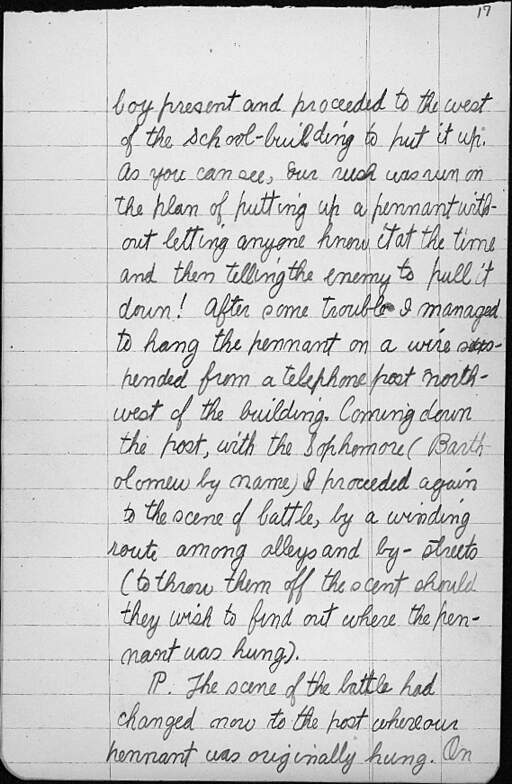 17
boy present and proceeded to the west
of the school-building to put it up.
As you can see, our rush was run on
the plan of putting up a pennant with-
out letting anyone know it at the time
and then telling the enemy to pull it
down! After some trouble I managed
to hang the pennant on a wire sus-
pended from a telephone post north-
west of the building. Coming down
the post, with the Sophomore (Barth
olomew by name) I proceeded again
to the scene of battle, by a winding
route among alleys and by-streets
(to throw them off the scent should
they wish to find out where the pen-
nant was hung).
P. The scene of the battle had
changed now to the post where our
pennant was originally hung. On